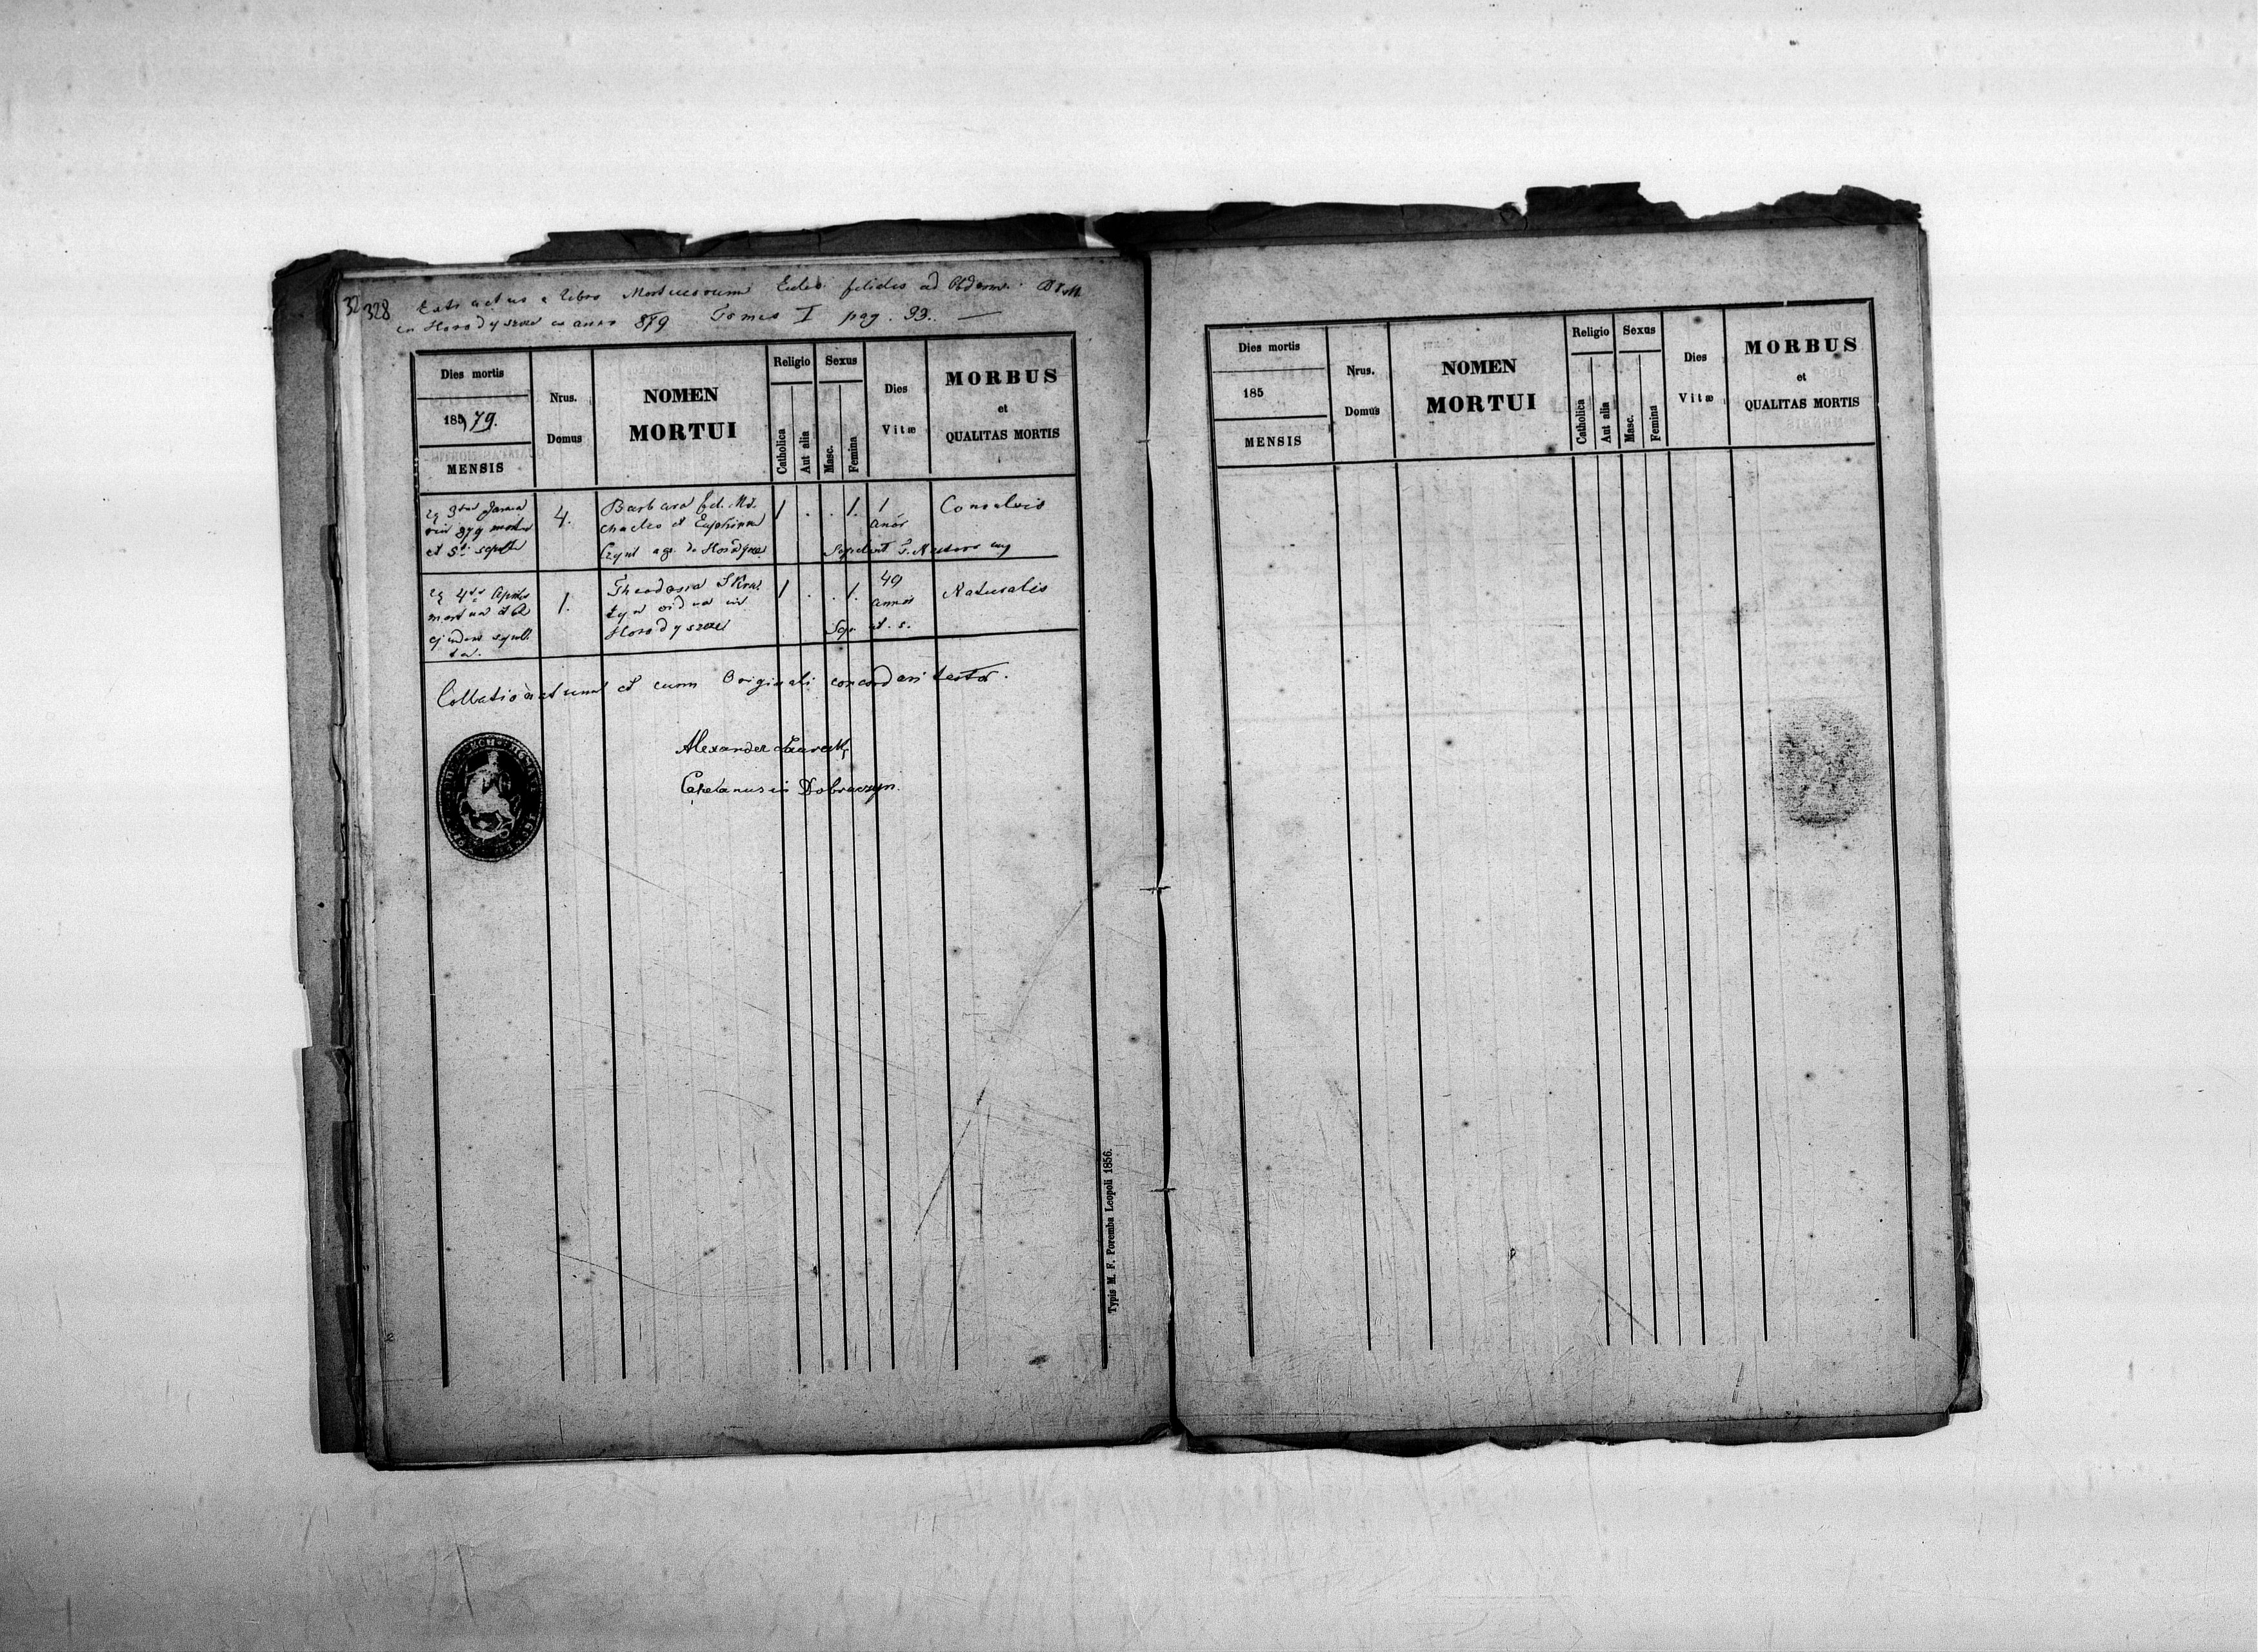 328
Extractus e libro Mortuorum Eccles. filialis ad
in Horodyszcze ex anno 879 Tomus I pag. 93.
Dies mortis
185 79.
MENSIS
Nrus.
Domus
NOMEN
MORTUI
Religio
Catholica
Aut alia
Sexus
Masc.
Femina
Dies
Vitæ
MORBUS
et
QUALITAS MORTIS
3tia Janua
rii 879 mortua
et 5ti sepulta
4.
Barbara fil. Mi
chaelis et Euphimia
agr. de
1 . . 1.
1
Anor
Sepelivit
4ta Aprilis
mortua et
ejusdem sepul
ta.
1.
Theodosia
vidua in
Horodyszcze
1 . . 1.
49
annor
Sep. ut. s.
Naturalis
Collationatum et cum Originali concordari testor.
Alexander
Capelanus in Dobraczyn.
Typis M. F. Poremba Leopoli 1856.
Dies mortis
185
MENSIS
Nrus.
Domus
NOMEN
MORTUI
Religio
Catholica
Aut alia
Sexus
Masc.
Femina
Dies
Vitæ
MORBUS
et
QUALITAS MORTIS